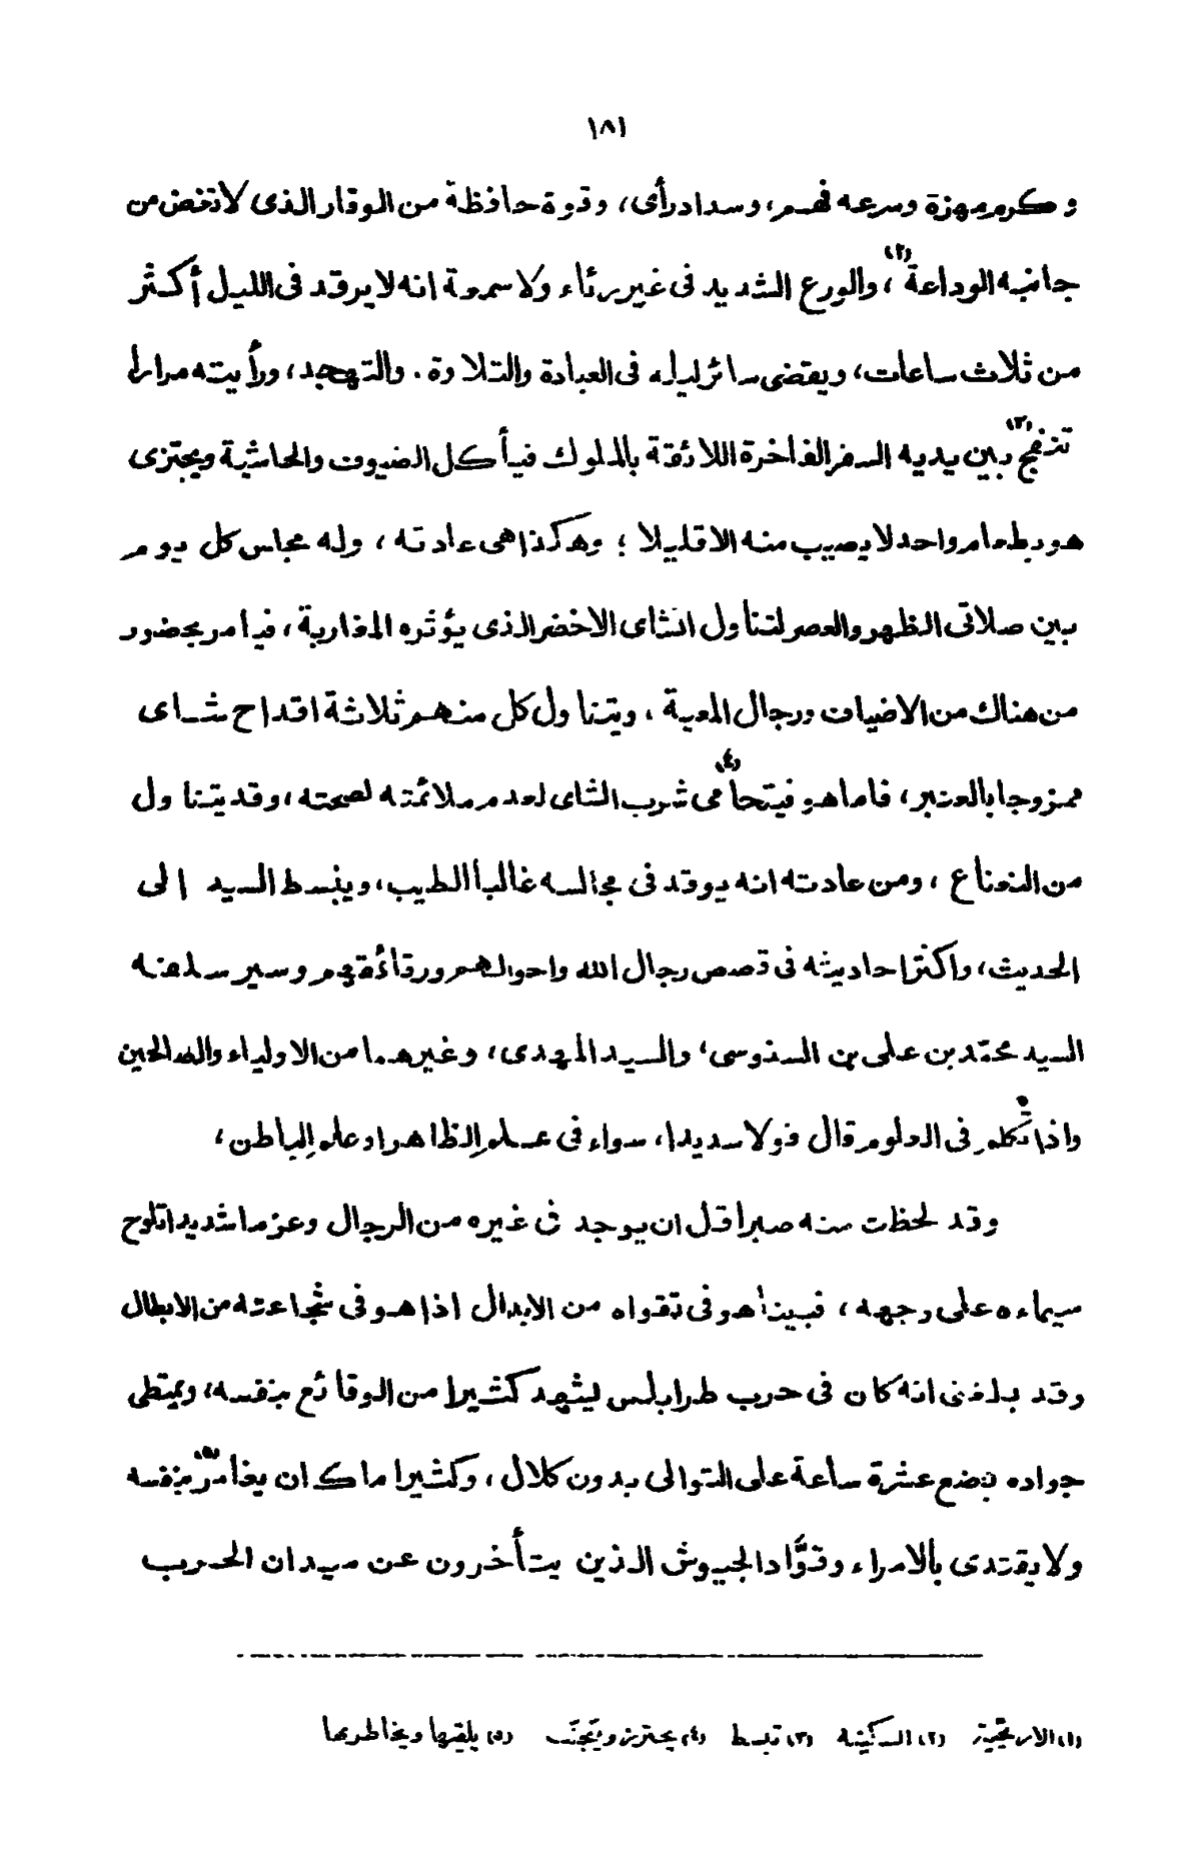 ١٨١
وكرم مهزة وسرعه فهم، وسداد رأى، وقوة حافظة من الوقار الذى لا تغض من
جانبه الوداعة (٢)، والورع الشديد فى غير رئاء ولا سمعة انه لا يرقد فى الليل أكثر
من ثلاث ساعات، ويقضى سائر ليله فى العبادة والتلاوة. والتهجد، ورأيته مرارا
تنفج (٣) بين يديه السفر الفاخرة اللائقة بالملوك فيأكل الضيوف والحاشية ويجتزى
هو بطعام واحد لا يصيب منه الا قليلا ؛ وهكذا هى عادته ، وله مجلس كل يوم
بين صلاتى الظهر والعصر لتناول الشاى الاخضر الذى يؤثره المغاربة، فيامر بحضور
من هناك من الاضياف ورجال المعية ، ويتناول كل منهم ثلاثة اقداح شاى
ممزوجا بالعنبر، فاما هو فيتحامى (٤) شرب الشاى لعدم ملائمته لصحته، وقد يتناول
من النعناع ، ومن عادته انه يوقد فى مجالسه غالبا الطيب، وينبسط السيد الى
الحديث، واكثر احاديثه فى قصص رجال الله واحوالهم ورقائقهم وسير سلفه
السيد محمّد بن على بن السنوسى، والسيد المهدى، وغيرهما من الاولياء والصالحين
واذا تكلم فى العلوم قال قولا سديدا، سواء فى علم الظاهر او علم الباطن،
وقد لحظت منه صبرا قل ان يوجد فى غيره من الرجال وعزما شديدا تلوح
سيماءه على وجهه ، فبينا هو فى تقواه من الابدال اذا هو فى شجاعته من الابطال
وقد بلغنى انه كان فى حرب طرابلس ليشهد كثيرا من الوقائع بنفسه، ويمتطى
جواده بضع عشرة ساعة على التوالى بدون كلال ، وكثيرا ما كان يغامر (٥) بنفسه
ولا يقتدى بالامراء وقوَّاد الجيوش الذين يتأخرون عن ميدان الحرب
(١) الاريحيّة (٢) السكينة (٣) تبسط (٤) يحترز ويتجنّب (٥) يلقيها ويخاطر بها